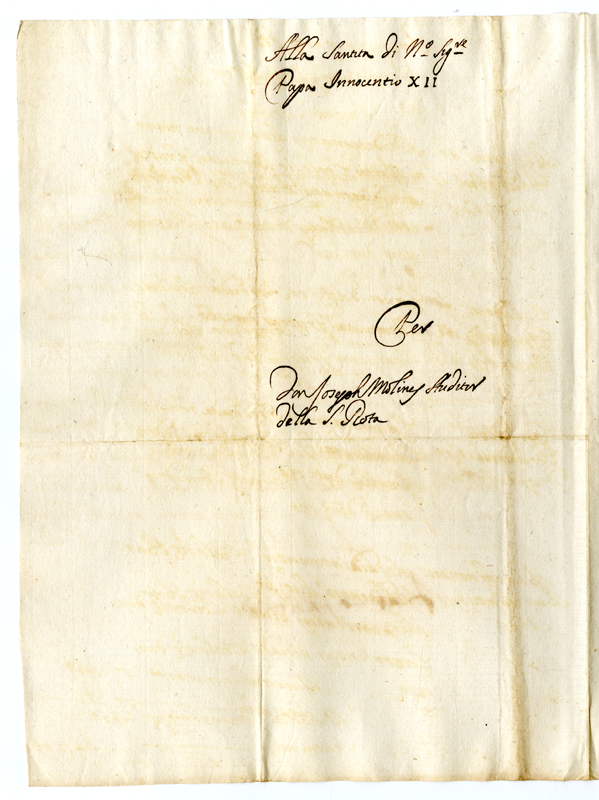 Alla Santita di N.o Sig.re
Papa Innocentio XII
Per
Don Joseph Molines Auditor
della S. Rota